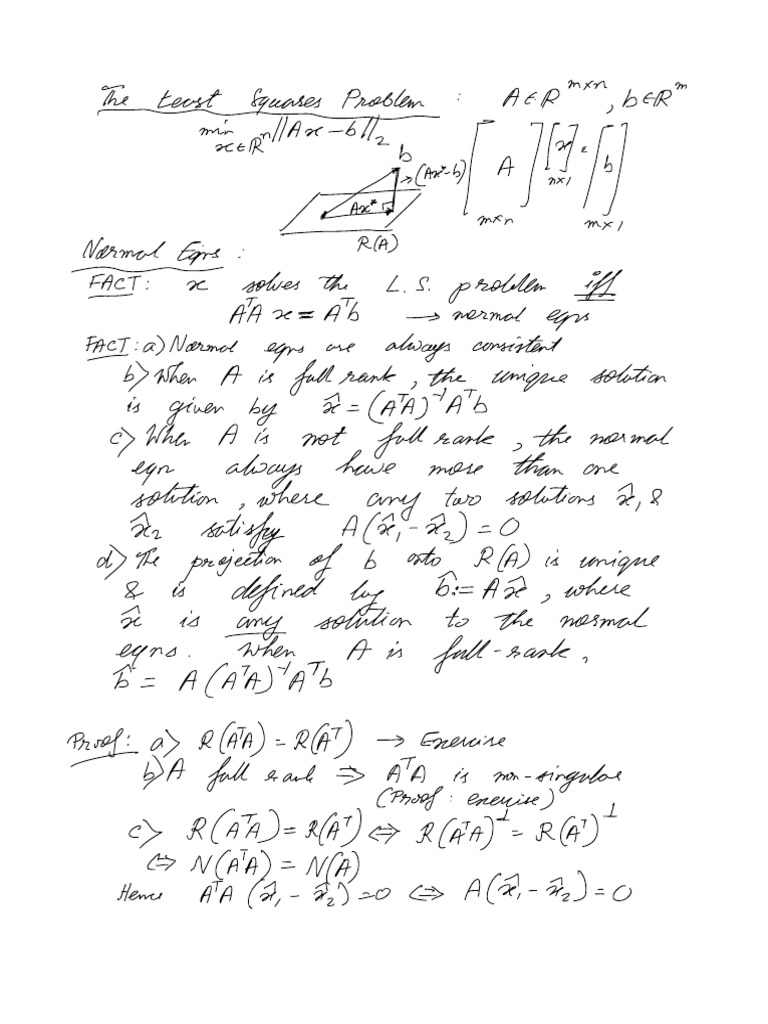 The Least Squares Problem : A ∈ R^{m×n}, b ∈ R^m
min_{x∈R^n} ||Ax − b||_2
[A]_{m×n} [x]_{n×1} = [b]_{m×1}
b
→(Ax*−b)
Ax*
R(A)
Normal Eqns :
FACT: x solves the L.S. problem iff
A^T A x = A^T b → normal eqns
FACT: a) Normal eqns are always consistent
b) When A is full rank, the unique solution
is given by x̂ = (A^T A)^{-1} A^T b
c) When A is not full rank, the normal
eqn always have more than one
solution, where any two solutions x̂_1 &
x̂_2 satisfy A(x̂_1 − x̂_2) = 0
d) The projection of b onto R(A) is unique
& is defined by b̂ := A x̂, where
x̂ is any solution to the normal
eqns. When A is full-rank,
b̂ = A(A^T A)^{-1} A^T b
Proof: a) R(A^T A) = R(A^T) → Exercise
b) A full rank ⇒ A^T A is non-singular
(Proof: exercise)
c) R(A^T A) = R(A^T) ⇔ R(A^T A)^⊥ = R(A^T)^⊥
⇔ N(A^T A) = N(A)
Hence A^T A (x̂_1 − x̂_2) = 0 ⇔ A(x̂_1 − x̂_2) = 0